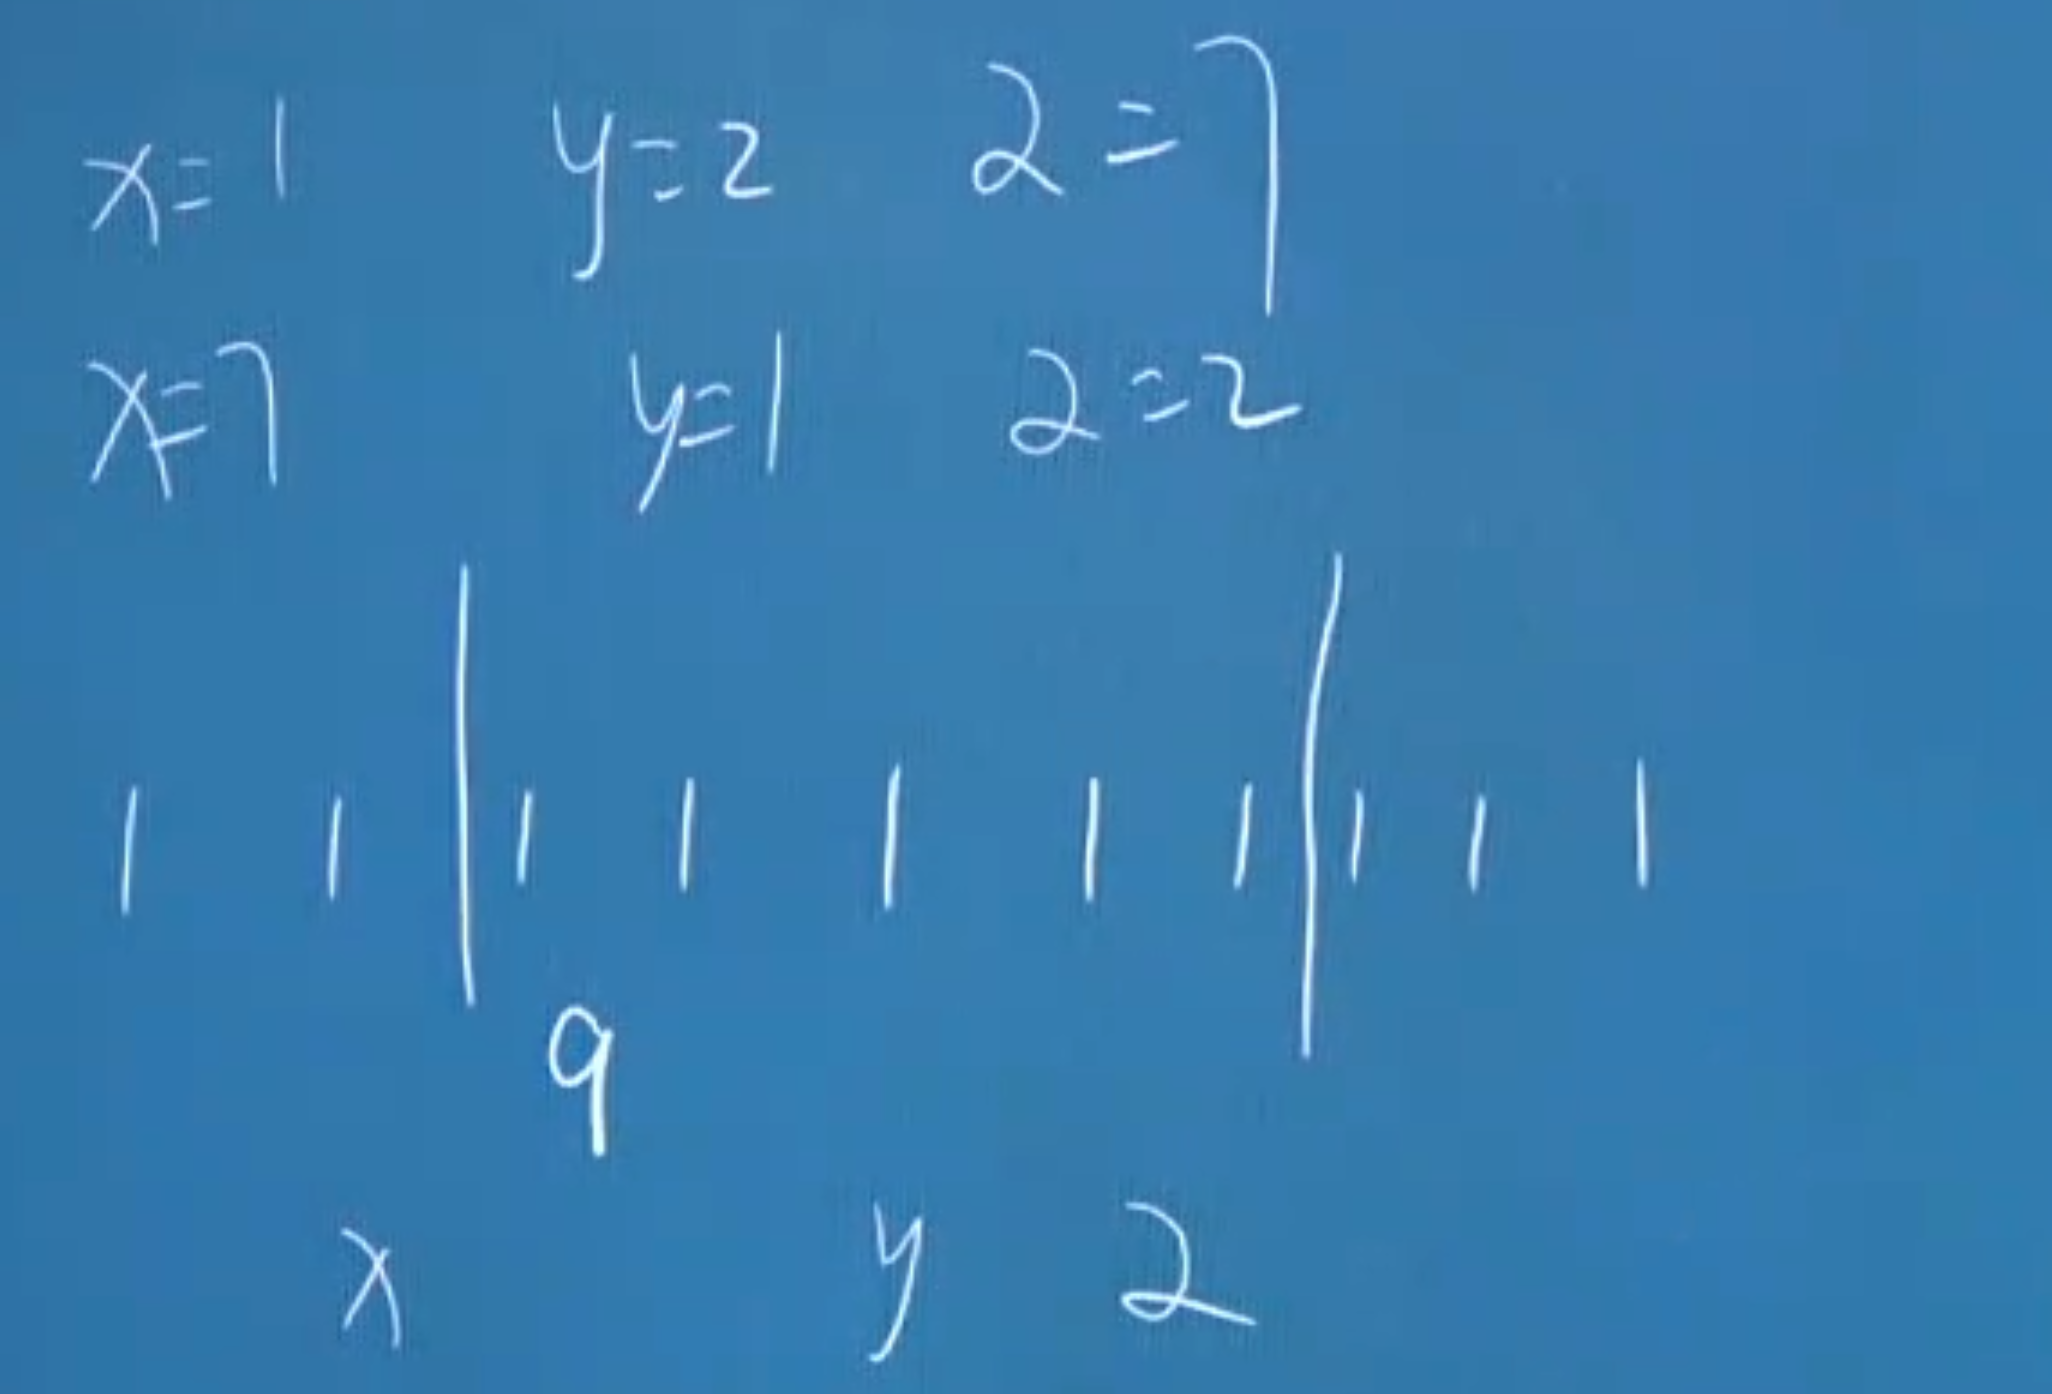 x=1 y=2 2=7
x=7 y=1 2=2
1 1 | 1 1 1 1 1 | 1 1 1
9
x y 2